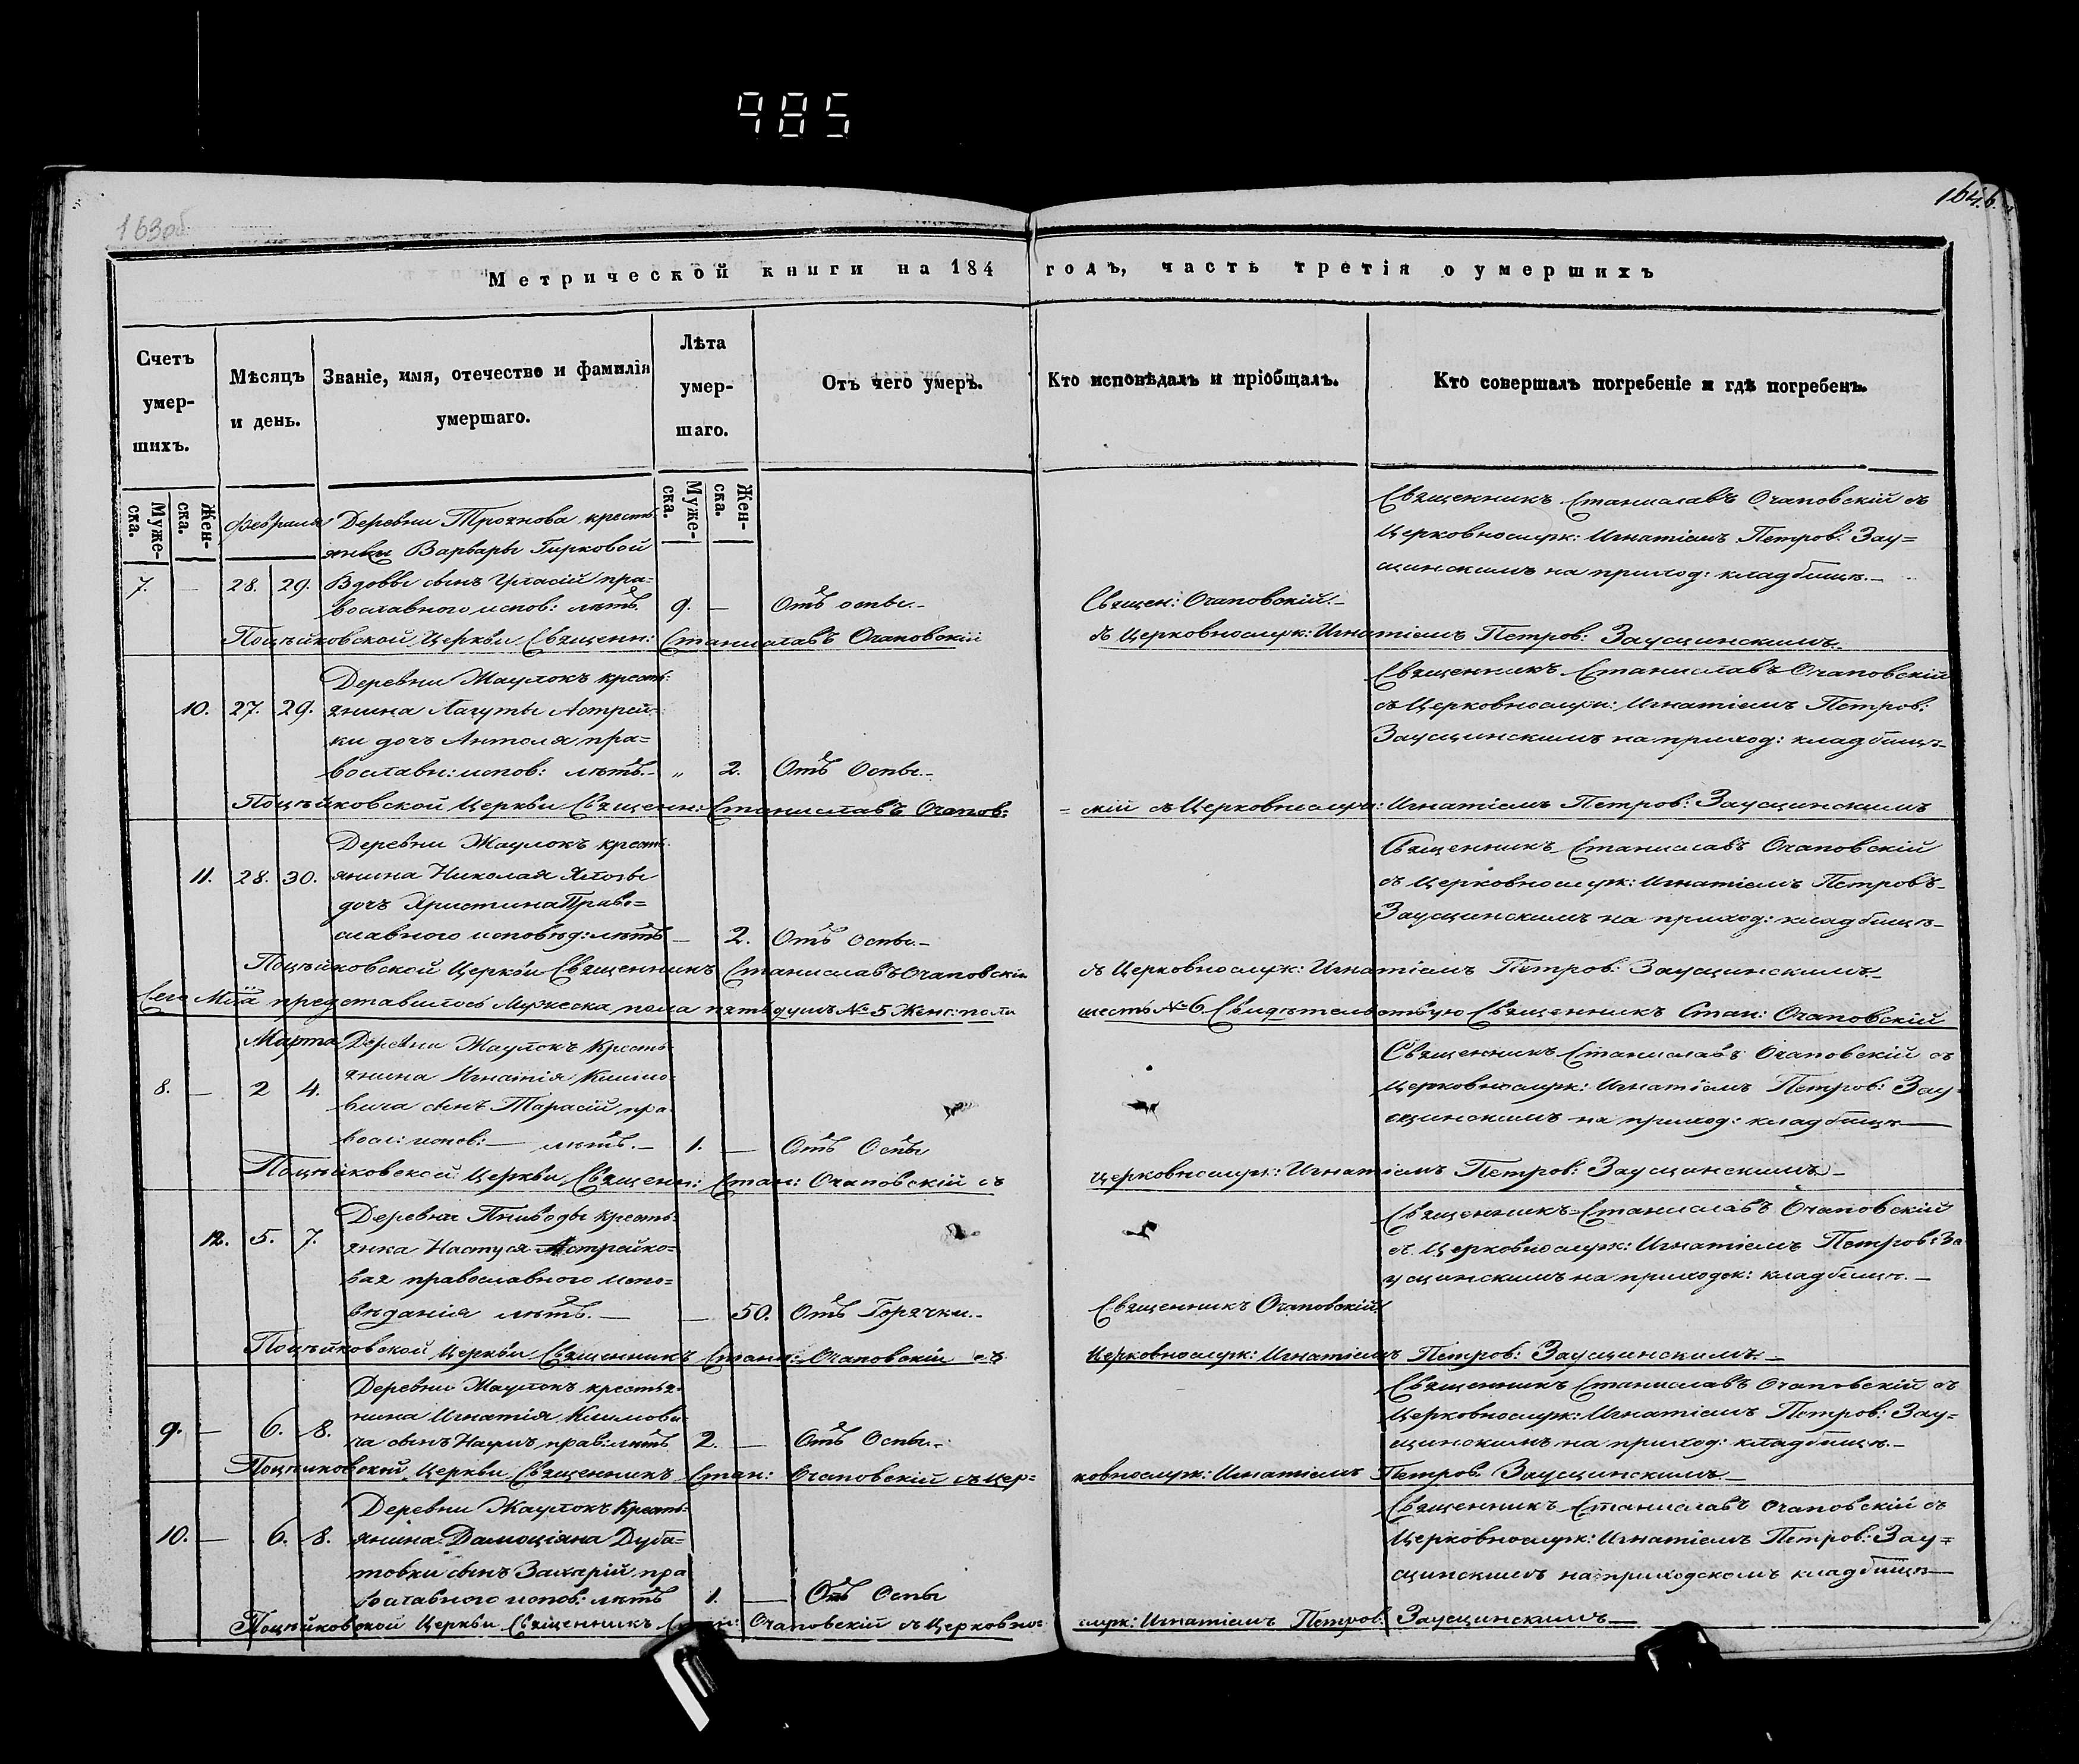 985
163об
164.
Метрической книги на 184 годъ, часть третія о умершихъ
Счетъ умер-шихъ.
Мѣсяцъ и день.
Званіе, имя, отечество и фамилія умершаго.
Лѣта умер-шаго.
Отъ чего умеръ.
Кто исповѣдалъ и пріобщалъ.
Кто совершалъ погребеніе и гдѣ погребенъ.
Муже-ска.
Жен-ска.
Муже-ска.
Жен-ска.
Февраля
Деревни Троянова кресть
янки Варвары Гирковой
7. — 28. 29. Вдовы сынъ пра=
вославного испов: лѣтъ 9. — Отъ оспы.—
Священ: Очаповскій.—
Священникъ Станиславъ Очаповскій съ
Церковнослуж: Игнатіемъ Петров: Зау=
сцинскимъ на приход: кладбищѣ.—
Поцѣйковской Церкви Священн: Станиславъ Очаповскій съ Церковнослуж: Игнатіемъ Петров: Заусцинскимъ.
Деревни Жаулокъ кресть:
10. 27. 29. янина Лагуты Астрей=
ки дочь Антоля пра=
вославн: испов: лѣтъ.— „ 2. Отъ Оспы.—
Священникъ Станиславъ Очаповскій
съ Церковнослуж: Игнатіемъ Петров:
Заусцинскимъ на приход: кладбищѣ
Поцѣйковской Церкви Священн: Станиславъ Очапов= =скій съ Церковнослуж: Игнатіемъ Петров: Заусцинскимъ
Деревни Жаулокъ кресть
11. 28. 30. янина Николая
дочь Христина Право=
славного исповѣд: лѣтъ — 2. Отъ Оспы.—
Священникъ Станиславъ Очаповскій
съ Церковнослуж: Игнатіемъ Петровъ
Заусцинскимъ на приход: кладбищѣ—
Поцѣйковской Церкви Священникъ Станиславъ Очаповскій съ Церковнослуж: Игнатіемъ Петров: Заусцинскимъ—
Сего Мца представилось Мужеска пола пять душъ №5 Женс: пола шесть №6. Свидѣтельствую Священникъ Стан: Очаповскій
Марта
Деревни Жаулокъ Кресть
8. — 2 4. янина Игнатія Климо=
вича сынъ Тарасій пра
восл: испов: — лѣтъ.— 1. — Отъ Оспы
Священникъ Станиславъ Очаповскій съ
Церковнослуж: Игнатіемъ Петров: Зау=
сцинскимъ на приход: кладбищѣ—
Поцѣйковской Церкви Священн: Стан: Очаповскій съ Церковнослуж: Игнатіемъ Петров: Заусцинскимъ—
Деревни Гниводы Кресть=
12. 5. 7. янка Настуся Астрейко=
вая православного испо=
вѣданія лѣтъ.— — 50. Отъ Горячки.—
Священникъ Очаповскій
Священникъ Станиславъ Очаповскій
съ Церковнослуж: Игнатіемъ Петров: За
усцинскимъ на приходск: кладбищѣ.—
Поцѣйковской Церкви Священникъ Стани: Очаповскій съ Церковнослуж: Игнатіемъ Петров: Заусцинскимъ.—
Деревни Жаулокъ крестья=
9. — 6. 8. нина Игнатія Климови
ча сынъ Наумъ прав: лѣтъ 2. — Отъ Оспы.—
Священникъ Станиславъ Очаповскій съ
Церковнослуж: Игнатіемъ Петров: Зау=
сцинскимъ на приход: кладбищѣ.—
Поцѣйковской Церкви Священникъ Стан: Очаповскій съ Цер= ковнослуж: Игнатіемъ Петров. Заусцинскимъ—
Деревни Жаулокъ Кресть=
10. — 6. 8. янина Дамоціяна Дуба=
товки сынъ Захарій пра
вославного испов: лѣтъ 1. — Отъ Оспы
Священникъ Станиславъ Очаповскій съ
Церковнослуж: Игнатіемъ Петров: Зау=
сцинскимъ на приходскомъ кладбищѣ—
Поцѣйковской Церкви Священникъ Очаповскій съ Церковно= служ: Игнатіемъ Петров: Заусцинскимъ—